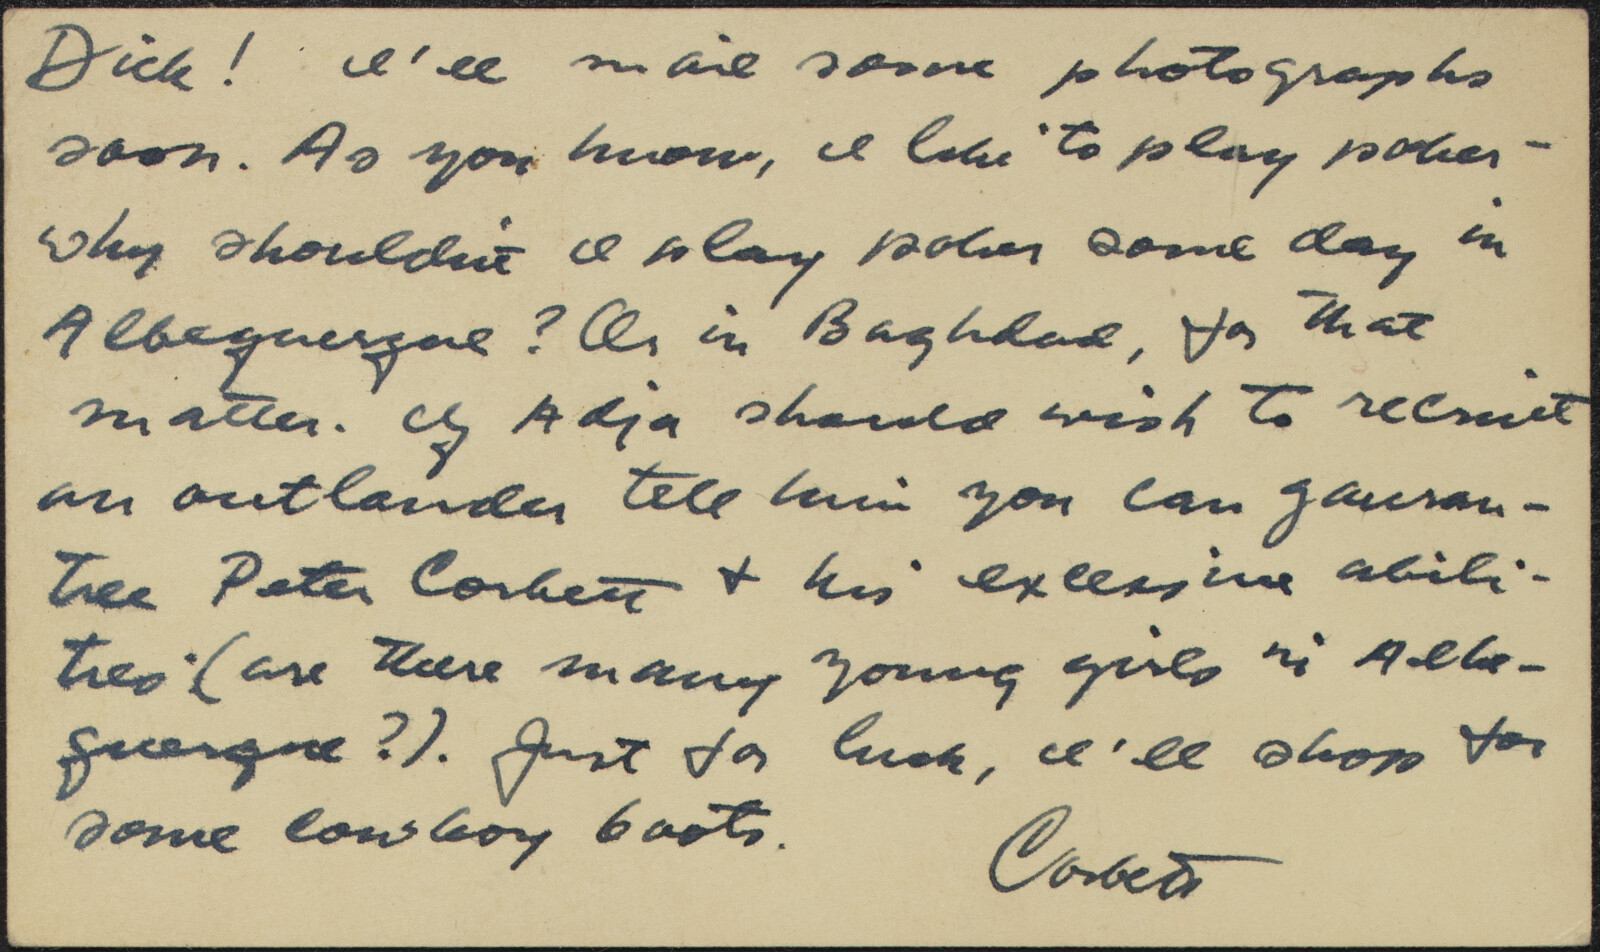 Dick! I'll mail some photographs
soon. As you know, I like to play poker -
why shouldn't I play poker some day in
Albequerque? Or in Baghdad, for that
matter. If Adja should wish to recruit
an outlander tell him you can gauran-
tee Peter Corbett + his excessive abili-
ties (are there many young girls in Albe-
querque?). Just for luck, I'll shop for
some cowboy boots.
Corbett